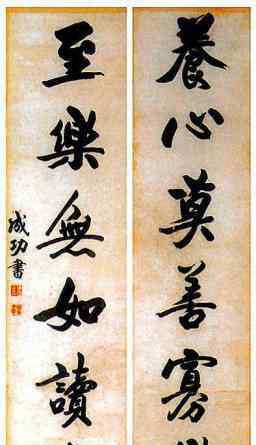 養心莫善寡
至樂無如讀
成功書